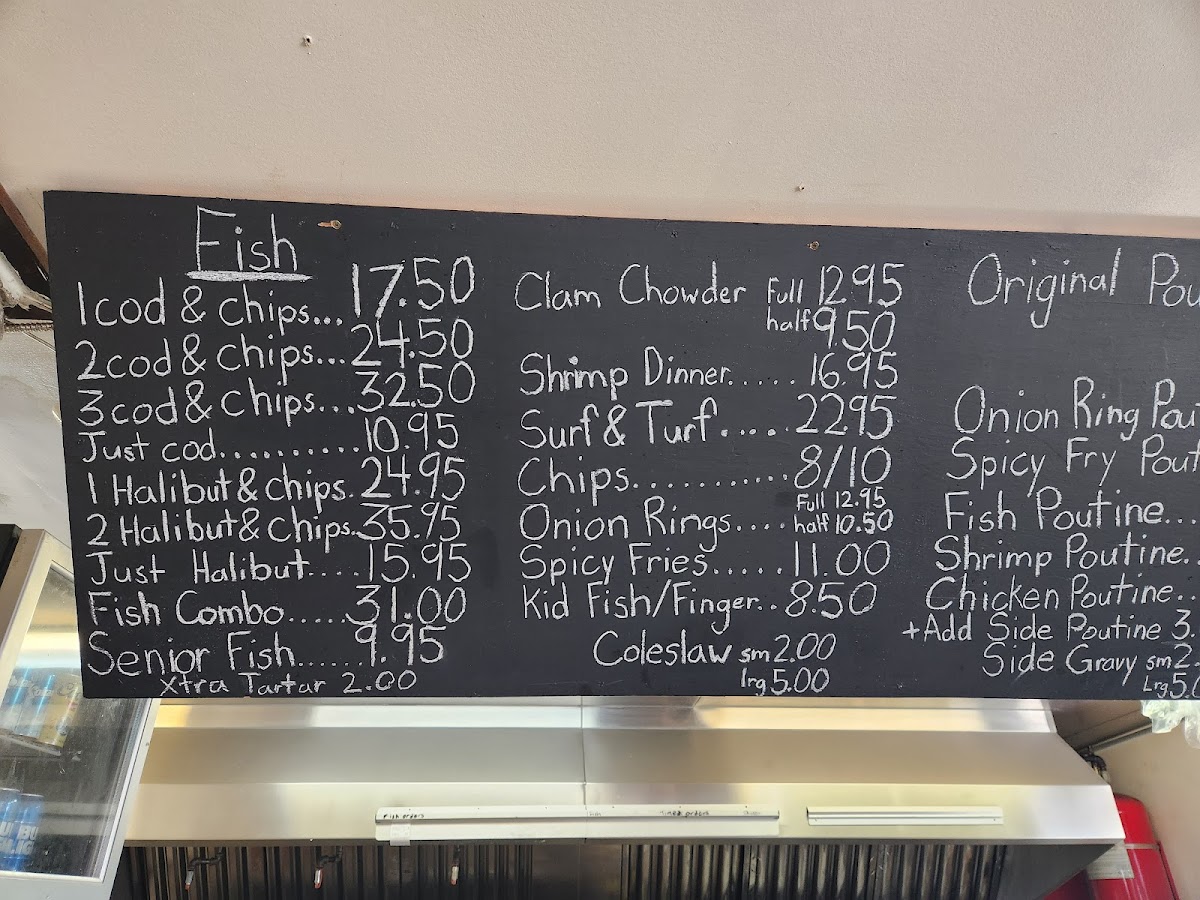 Fish
1 cod & chips... 17.50
2 cod & chips... 24.50
3 cod & chips... 32.50
Just cod.......... 10.95
1 Halibut & chips. 24.95
2 Halibut & chips.. 35.95
Just Halibut.... 15.95
Fish Combo..... 31.00
Senior Fish...... 9.95
Xtra Tartar 2.00
Clam Chowder Full 12.95
half 9.50
Shrimp Dinner..... 16.95
Surf & Turf..... 22.95
Chips........... 8/10
Full 12.95
Onion Rings.... half 10.50
Spicy Fries..... 11.00
Kid Fish/Finger.. 8.50
Coleslaw sm 2.00
lrg 5.00
Original Pou
Onion Ring Pou
Spicy Fry Pout
Fish Poutine...
Shrimp Poutine..
Chicken Poutine..
+Add Side Poutine 3.
Side Gravy sm 2.
Lrg 5.0
Fish orders